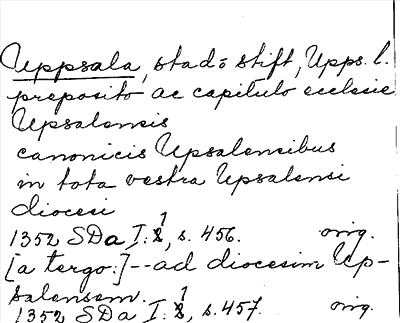 Uppsala, stad o stift, Upps. l.
preposito ac capitulo ecclesie
Upsalensis
canonicis Upsalensibus
in tota vestra Upsalensi
diocesi
1352 SDa I:1, s. 456. orig.
[a tergo:]--ad diocesim Up-
salensem.
1352 SDa I:1, s. 457. orig.